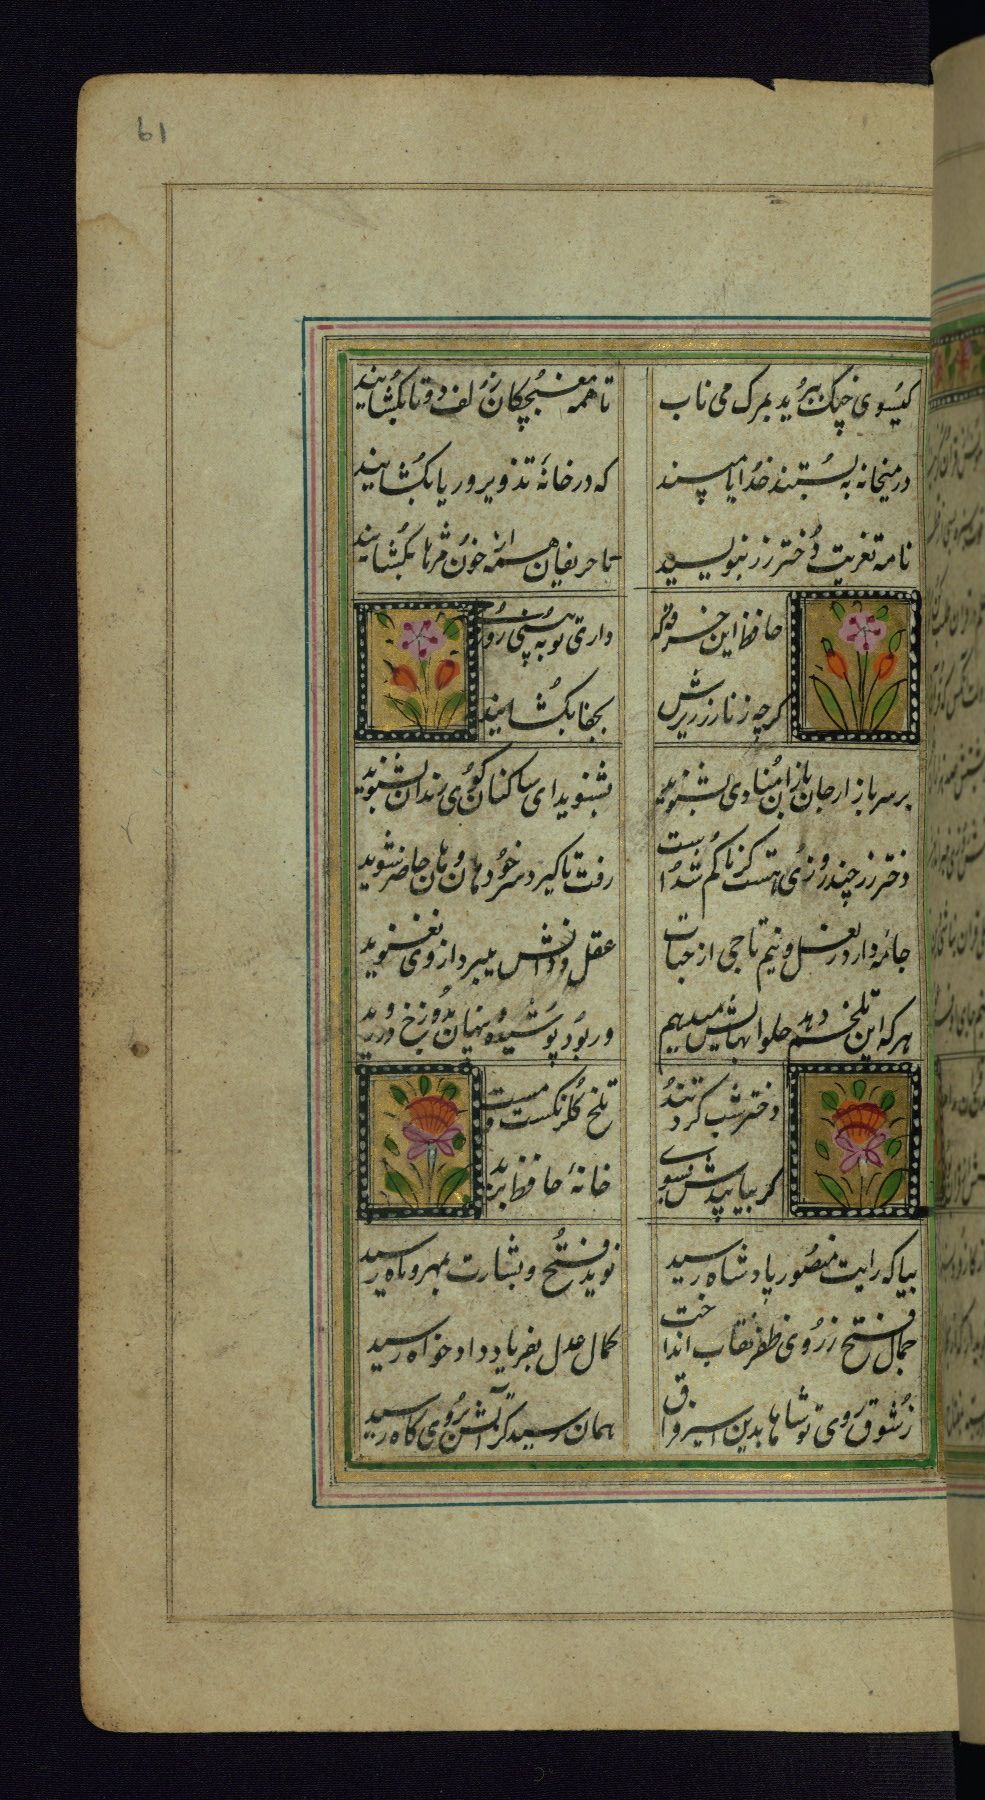 61
گیسوی چنگ ببرید بمرگ می ناب
تا همه مغبچگان زلف دوتا بگشایند
در میخانه به بستند خدایا مپسند
که در خانهٔ تذویر و ریا بگشایند
نامه تعزیت دختر رز بنویسید
تا حریفان همه از خون مژها بگشایند
حافظ این خرقه که
داری تو به بینی روزی
گرچه زنار ز زیرش
بجفا بگشایند
بر سر بازار جان بازان منادی بشنوید
بشنوید ای ساکنان کوی رندان بشنوید
دختر رز چند روزی هست کز ما گم شدست
رفت تا گیرد سر خود هان و هان حاضر شوید
جامه دارد ز لعل و نیم تاجی از حباب
عقل و دانش میبرد از وی نغنوید
هرکه این تلخم دهد حلوا بهایش میدهم
ور بود پوشیده و پنهان بدوزخ در روید
دختر شب گرد تند
تلخ گلرنگست مست
گر بیابیدش بسوی
خانهٔ حافظ برید
بیا که رایت منصور پادشاه رسید
نوید فتح و بشارت بمهر و ماه رسید
جمال فتح ز روی ظفر نقاب انداخت
کمال عدل بفریاد دادخواه رسید
ز شوق روی تو شاها بدین اسیر فراق
همان رسید کز آتش بروی کاه رسید